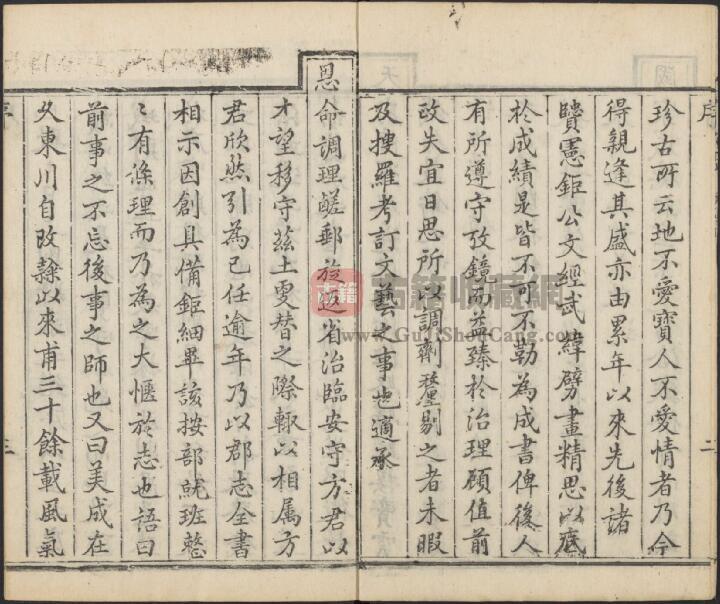 珍古所云地不愛寶人不愛情者乃今
得親逢其盛亦由累年以來先後諸
賢憲鉅公文經武緯劈畫精思以底
於成績是皆不可不勒為成書俾後人
有所遵守攷鏡而益臻於治理顧值前
政失宜日思所以調劑釐剔之者未暇
及搜羅考訂文藝之事也適承
恩命調理鹺郵旋返省治臨安守方君以
才望移守茲土叓替之際輒以相属方
君欣然引為已任逾年乃以郡志全書
相示因創具備鉅細畢該按部就班整
〻有條理而乃為之大愜於志也語曰
前事之不忘後事之師也又曰美成在
久東川自改隸以來甫三十餘載風氣
序
二
序
三
古籍
古籍收藏網
www.GuJiShouCang.com